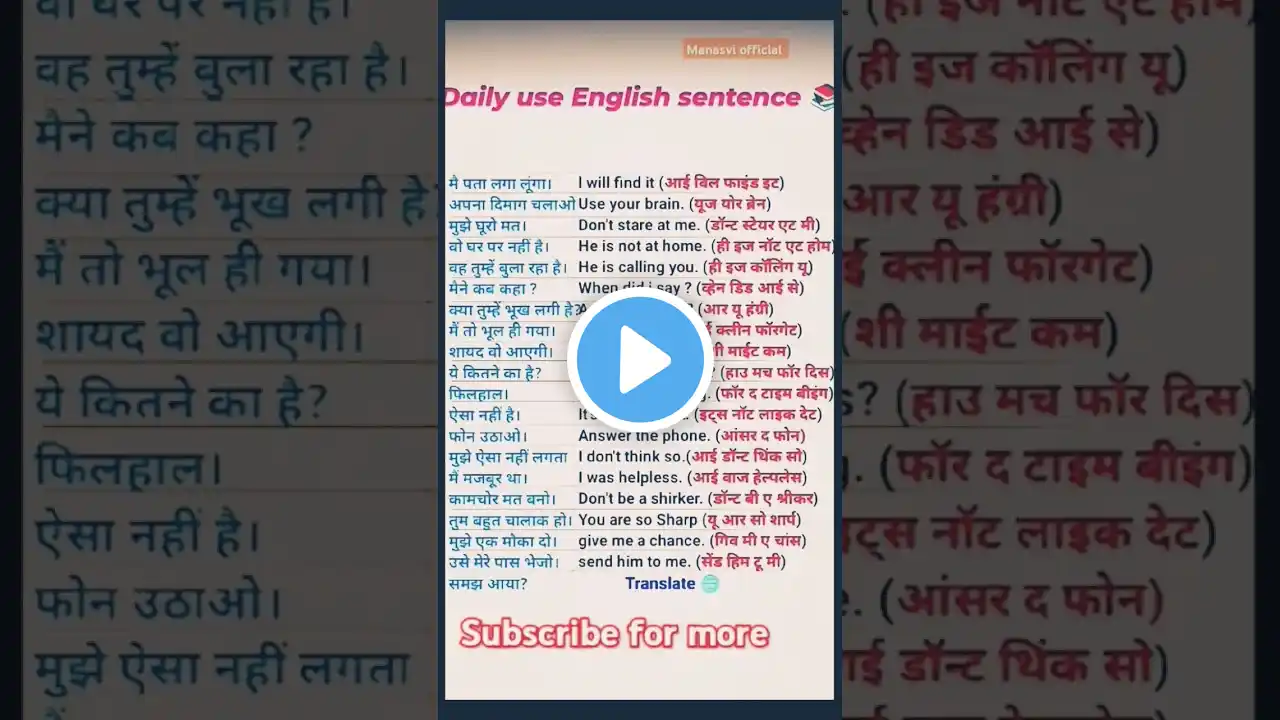 वह तुम्हें बुला रहा है।
मैने कब कहा ?
क्या तुम्हें भूख लगी है?
मैं तो भूल ही गया।
शायद वो आएगी।
ये कितने का है?
फिलहाल।
ऐसा नहीं है।
फोन उठाओ।
मुझे ऐसा नहीं लगता
Manasvi official
Daily use English sentence 📚
मै पता लगा लूंगा। I will find it (आई विल फाइंड इट)
अपना दिमाग चलाओ Use your brain. (यूज योर ब्रेन)
मुझे घूरो मत। Don't stare at me. (डॉन्ट स्टेयर एट मी)
वो घर पर नहीं है। He is not at home. (ही इज नॉट एट होम)
वह तुम्हें बुला रहा है। He is calling you. (ही इज कॉलिंग यू)
मैने कब कहा ? When did i say ? (व्हेन डिड आई से)
क्या तुम्हें भूख लगी है? (आर यू हंग्री)
मैं तो भूल ही गया। क्लीन फॉरगेट)
शायद वो आएगी। शी माईट कम)
ये कितने का है? ? (हाउ मच फॉर दिस)
फिलहाल। (फॉर द टाइम बीइंग)
ऐसा नहीं है। (इट्स नॉट लाइक देट)
फोन उठाओ। Answer the phone. (आंसर द फोन)
मुझे ऐसा नहीं लगता I don't think so.(आई डॉन्ट थिंक सो)
मैं मजबूर था। I was helpless. (आई वाज हेल्पलेस)
कामचोर मत बनो। Don't be a shirker. (डॉन्ट बी ए श्रीकर)
तुम बहुत चालाक हो। You are so Sharp (यू आर सो शार्प)
मुझे एक मोका दो। give me a chance. (गिव मी ए चांस)
उसे मेरे पास भेजो। send him to me. (सेंड हिम टू मी)
समझ आया? Translate 🌐
Subscribe for more
(ही इज कॉलिंग यू)
डिड आई से)
आर यू हंग्री)
क्लीन फॉरगेट)
(शी माईट कम)
s? (हाउ मच फॉर दिस)
. (फॉर द टाइम बीइंग)
नॉट लाइक देट)
(आंसर द फोन)
डॉन्ट थिंक सो)